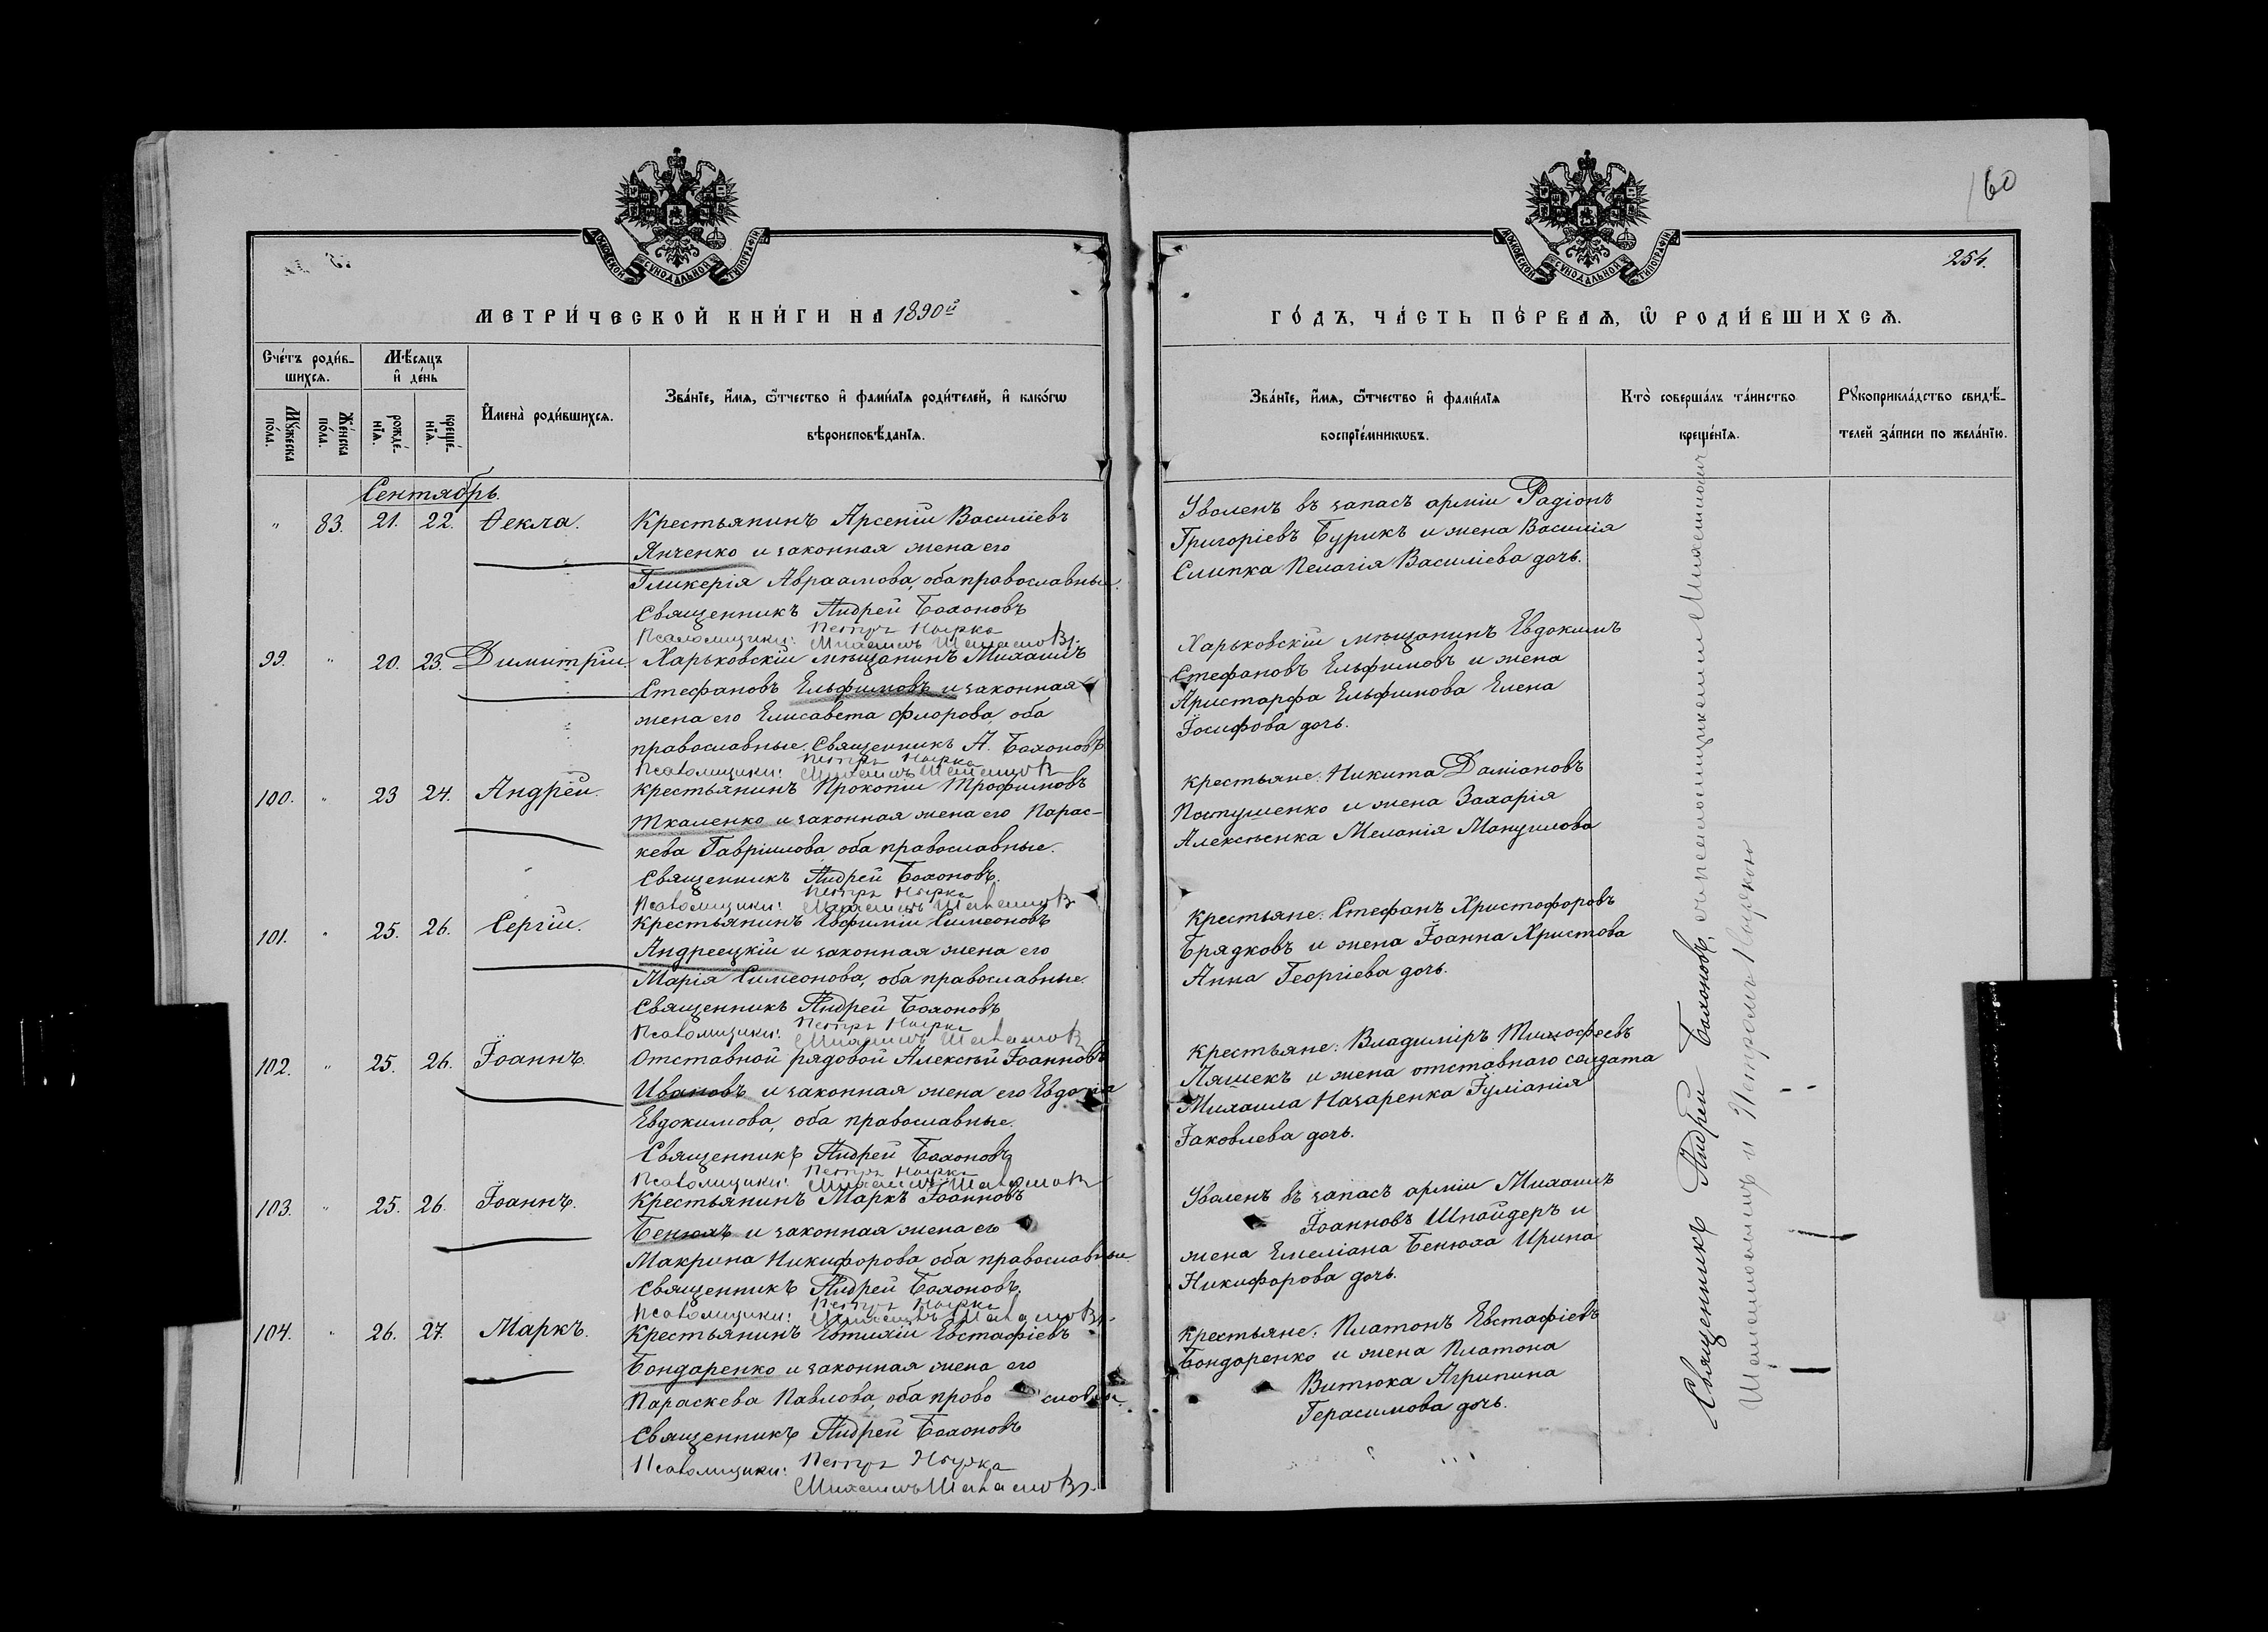 160
254.
МОСКОВСКОЙ СѴНОДАЛЬНОЙ ТИПОГРАФІИ
МОСКОВСКОЙ СѴНОДАЛЬНОЙ ТИПОГРАФІИ
МЕТРИ́ЧЕСКОЙ КНИ́ГИ НА 1890й
ГО́ДЪ, ЧА́СТЬ ПЕ́РВАѦ, Ѡ РОДИ́ВШИХСѦ.
Сче́тъ роди́в-
шихсѧ.
Мѣ́сѧцъ
и҆ де́нь
Мꙋ́жеска
по́ла.
Же́нска
по́ла.
рожде́-
нїѧ.
креще́-
нїѧ.
И҆мена̀ роди́вшихсѧ.
Зва́нїе, и҆́мѧ, ѻ҆́тчество и҆ фами́лїѧ роди́телей, и҆ како́гѡ
вѣроисповѣ́данїѧ.
Зва́нїе, и҆́мѧ, ѻ҆́тчество и҆ фами́лїѧ
воспрїе́мникѡвъ.
Кто̀ соверша́лъ та́инство
креще́нїѧ.
Рꙋкоприкла́дство свидѣ́-
телей за́писи по жела́нїю.
Сентябрь.
" 83. 21. 22. Ѳекла. Крестьянинъ Арсеній Василіевъ
Янченко и законная жена его
Гликерія Авраамова, оба православные.
Священникъ Андрей Бахоновъ
Псаломщики: Петръ
Михаилъ
Уволенъ въ запасъ арміи Радіонъ
Григоріевъ Бурикъ и жена Василія
Слипка Пелагія Василіева дочь.
99. " 20. 23. Димитрій. Харьковскій мѣщанинъ Михаилъ
Стефановъ Ельфимовъ и законная
жена его Елисавета Флорова, оба
православные. Священникъ А. Бахоновъ
Псаломщики: Петръ
Михаилъ
Харьковскій мѣщанинъ Евдокимъ
Стефановъ Ельфимовъ и жена
Аристарфа Ельфимова Елена
Іосифова дочь.
100. " 23 24. Андрей. Крестьянинъ Прокопій Трофимовъ
Ткаленко и законная жена его Парас-
кева Гавріилова оба православные.
Священникъ Андрей Бахоновъ.
Псаломщики: Петръ
Михаилъ
Крестьяне: Никита Даміановъ
Пастушенко и жена Захарія
Алексѣенка Меланія Мануилова
101. " 25. 26. Сергій. Крестьянинъ Евфимій Симеоновъ
Андреецкій и законная жена его
Марія Симеонова, оба православные.
Священникъ Андрей Бахоновъ
Псаломщики: Петръ
Михаилъ
Крестьяне: Стефанъ Христофоровъ
Брядковъ и жена Іоанна Христова
Анна Георгіева дочь.
102. " 25. 26. Іоаннъ. Отставной рядовой Алексѣй Іоанновъ
Ивановъ и законная жена его Евдокія
Евдокимова, оба православные.
Священникъ Андрей Бахоновъ
Псаломщики: Петръ
Михаилъ
Крестьяне: Владиміръ Тимофеевъ
Ляшекъ и жена отставнаго солдата
Михаила Назаренка Іуліанія
Іаковлева дочь.
103. " 25. 26. Іоаннъ. Крестьянинъ Маркъ Іоанновъ
Бенюхъ и законная жена его
Макрина Никифорова оба православные.
Священникъ Андрей Бахоновъ.
Псаломщики: Петръ
Михаилъ
Уволенъ въ запасъ арміи Михаилъ
Іоанновъ Шнайдеръ и
жена Емеліана Бенюха Ирина
Никифорова дочь.
104. " 26. 27. Маркъ. Крестьянинъ Евтихій Евстафіевъ
Бондаренко и законная жена его
Параскева Павлова, оба
Священникъ Андрей Бахоновъ
Псаломщики: Петръ
Михаилъ
Крестьяне: Платонъ Евстафіевъ
Бондаренко и жена Платона
Витюка Агрипина
Герасимова дочь.
Священникъ Андрей Бахоновъ, съ псаломщиками Михаиломъ
и Петромъ